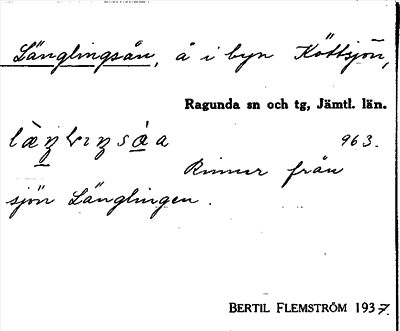 Länglingsån, å i byn Köttsjön,
Ragunda sn och tg, Jämtl. län.
963.
Rinner från
sjön Länglingen.
BERTIL FLEMSTRÖM 1937.